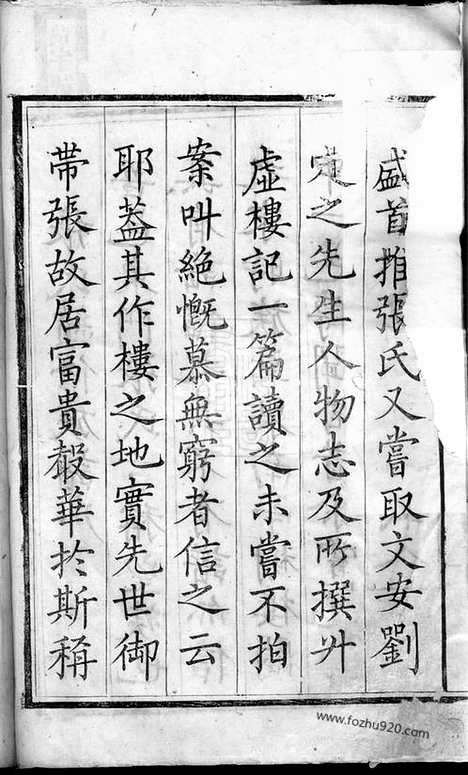 盛首推張氏又嘗取文安劉
定之先生人物志及所撰升
虛樓記一篇讀之未嘗不拍
案叫絕慨慕無窮者信之云
耶蓋其作樓之地實先世御
帶張故居富貴縠華於斯稱
www.fozhu920.com